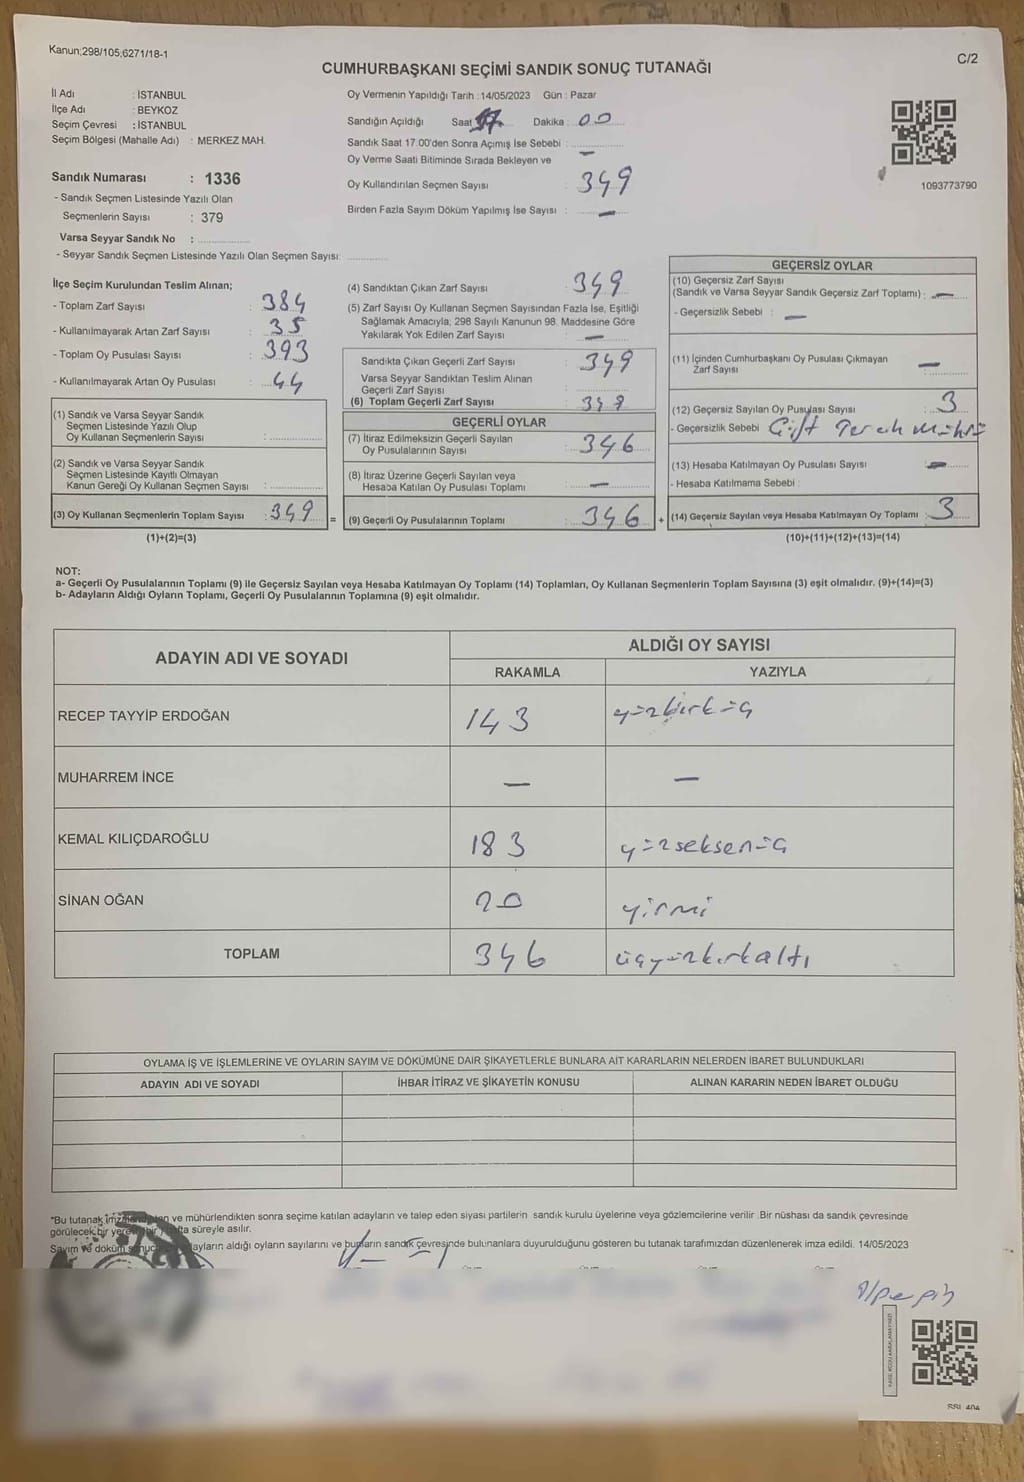 Kanun;298/105,6271/18-1
C/2
CUMHURBAŞKANI SEÇİMİ SANDIK SONUÇ TUTANAĞI
İl Adı : İSTANBUL
İlçe Adı : BEYKOZ
Seçim Çevresi : İSTANBUL
Seçim Bölgesi (Mahalle Adı) : MERKEZ MAH.
Sandık Numarası : 1336
- Sandık Seçmen Listesinde Yazılı Olan
Seçmenlerin Sayısı : 379
Varsa Seyyar Sandık No :
- Seyyar Sandık Seçmen Listesinde Yazılı Olan Seçmen Sayısı:
Oy Vermenin Yapıldığı Tarih :14/05/2023 Gün : Pazar
Sandığın Açıldığı Saat 17 Dakika : 00
Sandık Saat 17.00'den Sonra Açımış İse Sebebi : —
Oy Verme Saati Bitiminde Sırada Bekleyen ve
Oy Kullandırılan Seçmen Sayısı : 349
Birden Fazla Sayım Döküm Yapılmış İse Sayısı : —
1093773790
İlçe Seçim Kurulundan Teslim Alınan;
- Toplam Zarf Sayısı : 384
- Kullanılmayarak Artan Zarf Sayısı : 35
- Toplam Oy Pusulası Sayısı : 393
- Kullanılmayarak Artan Oy Pusulası : 44
(1) Sandık ve Varsa Seyyar Sandık
Seçmen Listesinde Yazılı Olup
Oy Kullanan Seçmenlerin Sayısı :
(2) Sandık ve Varsa Seyyar Sandık
Seçmen Listesinde Kayıtlı Olmayan
Kanun Gereği Oy Kullanan Seçmen Sayısı :
(3) Oy Kullanan Seçmenlerin Toplam Sayısı : 349 =
(1)+(2)=(3)
(4) Sandıktan Çıkan Zarf Sayısı : 349
(5) Zarf Sayısı Oy Kullanan Seçmen Sayısından Fazla İse, Eşitliği
Sağlamak Amacıyla; 298 Sayılı Kanunun 98. Maddesine Göre
Yakılarak Yok Edilen Zarf Sayısı : —
Sandıkta Çıkan Geçerli Zarf Sayısı : 349
Varsa Seyyar Sandıktan Teslim Alınan
Geçerli Zarf Sayısı :
(6) Toplam Geçerli Zarf Sayısı : 349
GEÇERLİ OYLAR
(7) İtiraz Edilmeksizin Geçerli Sayılan
Oy Pusulalarının Sayısı : 346
(8) İtiraz Üzerine Geçerli Sayılan veya
Hesaba Katılan Oy Pusulası Toplamı : —
(9) Geçerli Oy Pusulalarının Toplamı : 346 +
GEÇERSİZ OYLAR
(10) Geçersiz Zarf Sayısı
(Sandık ve Varsa Seyyar Sandık Geçersiz Zarf Toplamı) : —
- Geçersizlik Sebebi : —
(11) İçinden Cumhurbaşkanı Oy Pusulası Çıkmayan
Zarf Sayısı : —
(12) Geçersiz Sayılan Oy Pusulası Sayısı : 3
- Geçersizlik Sebebi Çift Tercih Mührü
(13) Hesaba Katılmayan Oy Pusulası Sayısı : —
- Hesaba Katılmama Sebebi :
(14) Geçersiz Sayılan veya Hesaba Katılmayan Oy Toplamı : 3
(10)+(11)+(12)+(13)=(14)
NOT:
a- Geçerli Oy Pusulalarının Toplamı (9) ile Geçersiz Sayılan veya Hesaba Katılmayan Oy Toplamı (14) Toplamları, Oy Kullanan Seçmenlerin Toplam Sayısına (3) eşit olmalıdır. (9)+(14)=(3)
b- Adayların Aldığı Oyların Toplamı, Geçerli Oy Pusulalarının Toplamına (9) eşit olmalıdır.
ADAYIN ADI VE SOYADI
ALDIĞI OY SAYISI
RAKAMLA YAZIYLA
RECEP TAYYİP ERDOĞAN 143 yüzkırküç
MUHARREM İNCE — —
KEMAL KILIÇDAROĞLU 183 yüzseksenüç
SİNAN OĞAN 20 yirmi
TOPLAM 346 üçyüzkırkaltı
OYLAMA İŞ VE İŞLEMLERİNE VE OYLARIN SAYIM VE DÖKÜMÜNE DAİR ŞİKAYETLERLE BUNLARA AİT KARARLARIN NELERDEN İBARET BULUNDUKLARI
ADAYIN ADI VE SOYADI İHBAR İTİRAZ VE ŞİKAYETİN KONUSU ALINAN KARARIN NEDEN İBARET OLDUĞU
*Bu tutanak ve mühürlendikten sonra seçime katılan adayların ve talep eden siyasi partilerin sandık kurulu üyelerine veya gözlemcilerine verilir .Bir nüshası da sandık çevresinde
görülecek bir yere süreyle asılır.
Sayım ve döküm aldığı oyların sayılarını ve bunların sandık çevresinde bulunanlara duyurulduğunu gösteren bu tutanak tarafımızdan düzenlenerek imza edildi. 14/05/2023